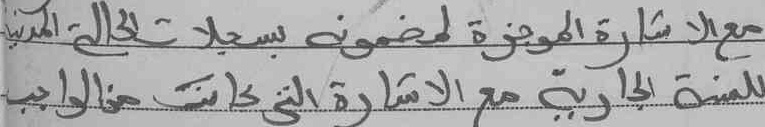 مع الاشارة الموجزة لمضمونه بسجلات الحالة المدنية
للسنة الجارية مع الاشارة التي كانت من الواجب